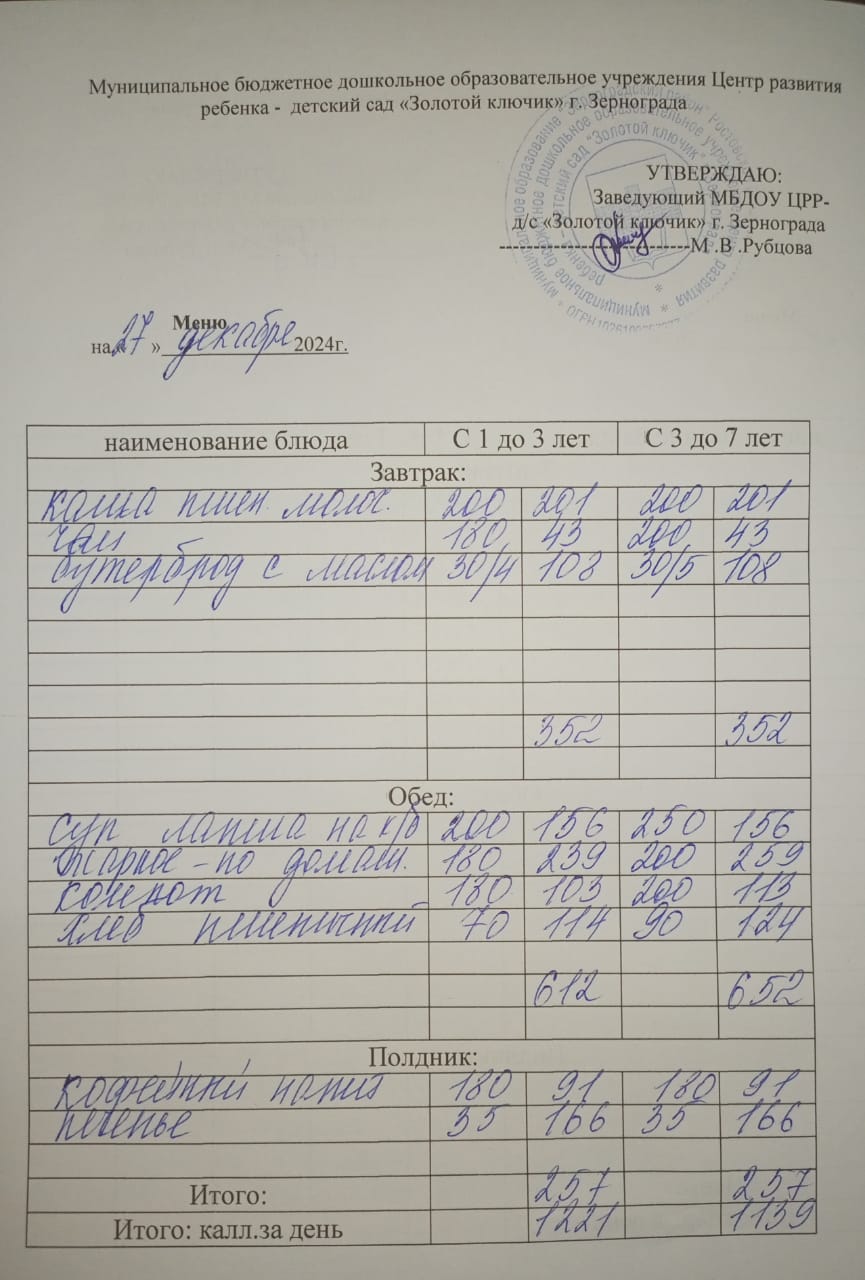 Муниципальное бюджетное дошкольное образовательное учреждения Центр развития
ребенка - детский сад «Золотой ключик» г. Зернограда
УТВЕРЖДАЮ:
Заведующий МБДОУ ЦРР-
д/с «Золотой ключик» г. Зернограда
М .В .Рубцова
Меню
на «27 » декабре 2024г.
наименование блюда С 1 до 3 лет С 3 до 7 лет
Завтрак:
каша пшен. молоч. 200 201 200 201
чай 180 43 200 43
бутерброд с маслом 30/4 108 30/5 108
352 352
Обед:
суп лапша на к/б 200 156 250 156
Жаркое - по домаш. 180 239 200 259
компот 180 103 200 113
хлеб пшеничный 70 114 90 124
612 652
Полдник:
кофейный напит 180 91 180 91
печенье 35 166 35 166
Итого: 257 257
Итого: калл.за день 1221 1139